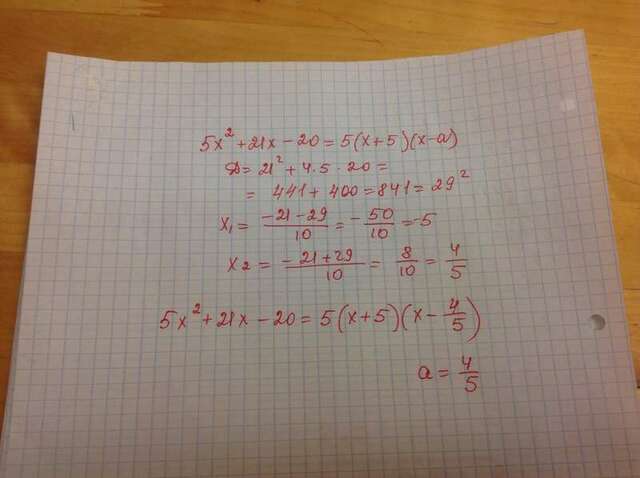 5x² + 21x - 20 = 5(x+5)(x-a)
D = 21² + 4·5·20 =
= 441 + 400 = 841 = 29²
x₁ = (-21-29)/10 = -50/10 = -5
x₂ = (-21+29)/10 = 8/10 = 4/5
5x² + 21x - 20 = 5(x+5)(x - 4/5)
a = 4/5